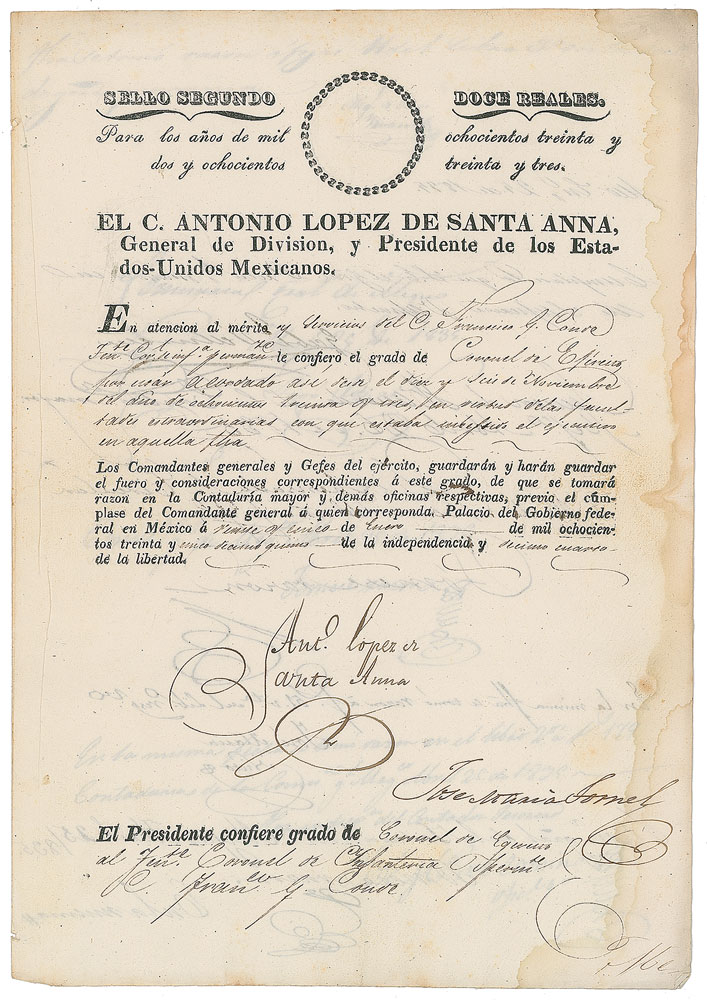 SELLO SEGUNDO
DOCE REALES.
Para los años de mil
ochocientos treinta y
dos y ochocientos
treinta y tres.
EL C. ANTONIO LOPEZ DE SANTA ANNA,
General de Division, y Presidente de los Esta-
dos-Unidos Mexicanos.
En atencion al mérito y servicios del C. Francisco G. Conde
Tente. Corl. permane. le confiero el grado de Coronel de Egército
por haber acordado así desde el diez y seis de Noviembre
del año de ochocientos treinta y tres, en virtud de las facul-
tades extraordinarias con que estaba el ejecutivo
en aquella fha.
Los Comandantes generales y Gefes del ejército, guardarán y harán guardar
el fuero y consideraciones correspondientes á este grado, de que se tomará
razon en la Contaduría mayor y demás oficinas respectivas, previo el cúm-
plase del Comandante general á quien corresponda. Palacio del Gobierno fede-
ral en México á veinte y cinco de Enero de mil ochocien-
tos treinta y cinco decimo quinto de la independencia y decimo cuarto
de la libertad.
Anto. Lopez de
Santa Anna
Jose Maria Tornel
El Presidente confiere grado de Coronel de Egército
al Tente. Coronel de Infanteria Perm.te
C. Franco. G. Conde.